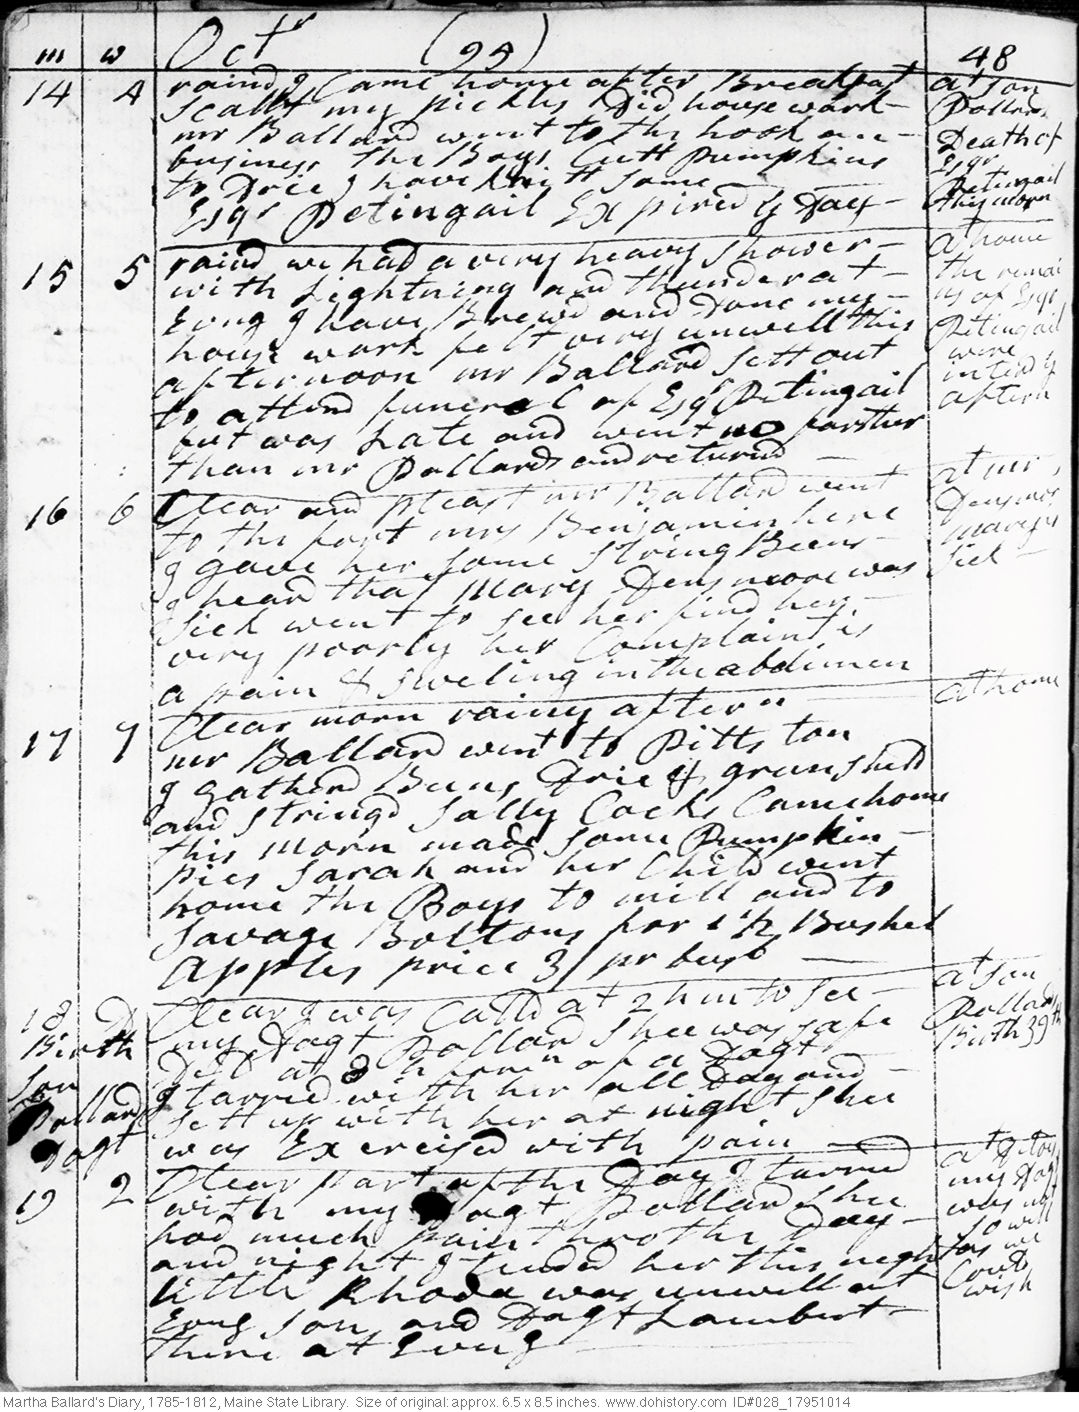 m w Octr (95) 48
14 4 raind I Came home after Breakfast
Scallt my pickles Did house work
mr Ballard went to the hook on
business the Boys Cutt Pumpkins
to Drie I have knitt some
Esqr Petingail Expired y Day
at son
Pollards
Death of
Esqr
Petingail
this morn
15 5 raind we had a very heavy shower
with Lightning and thunder at
Evng I have Brewd and Done my
house work felt very unwell this
afternoon mr Ballard sett out
to attend funeral of Esqr Petingail
but was Late and went no farther
than mr Pollards and returnd
at home
the remai
ns of Esqr
Petingail
were
interd y
aftern
16 6 Clear and pleast mr Ballard went
to the fort mrs Benjamin here
I gave her some string Beens
I heard that Mary Densmore was
sick went to see her find her
very poorly her Complaint is
a pain & sweling in the abdimen
at mr
Densmors
Mary is
sick
17 7 Clear morn rainy aftern
mr Ballard went to Pittston
I gatherd Beens Drie & green shelld
and stringd Sally Cocks Came home
this morn made some Pumpkin
pies Sarah and her Child went
home the Boys to mill and to
Savage Boltons for 1 1/2 Bushel
Apples price 3/ pr bush
at home
18 D Clear I was Calld at 2 h m to see
my Dagt Pollard Shee was safe
Deld at 8 h morn of a Dagt
I tarried with her all Day and
sett up with her at night Shee
was Exercised with pain
Birth
Son
Pollard
Dagt
at son
Pollards
Birth 39th
19 2 Clear part of the Day I tarried
with my Dagt Pollard shee
had much pain thro the Day
and night I tended her this night
little Rhoda was unwell at
Evng Son and Dagt Lambert
there at Evng
at ditoes
my Dagt
was not
so well
as we
Could
wish
Martha Ballard's Diary, 1785-1812, Maine State Library. Size of original: approx. 6.5 x 8.5 inches. www.dohistory.com ID#028_17951014